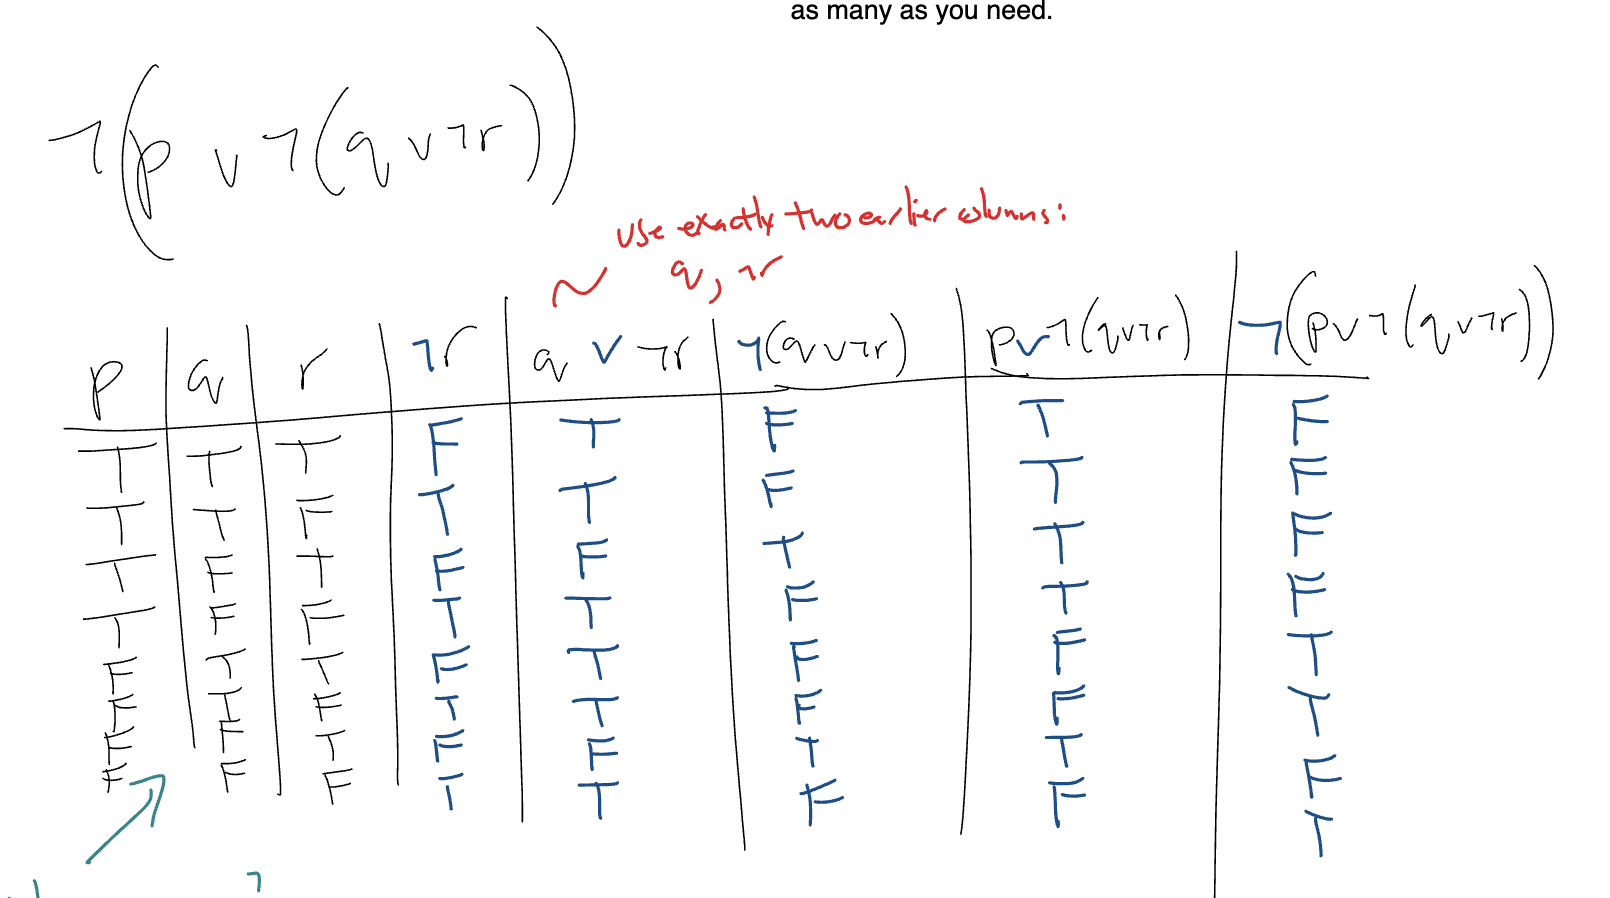 as many as you need.
¬(p ∨ ¬(q ∨ ¬r))
use exactly two earlier columns:
q, ¬r
p q r ¬r q ∨ ¬r ¬(q ∨ ¬r) p ∨ ¬(q ∨ ¬r) ¬(p ∨ ¬(q ∨ ¬r))
T T T F T F T F
T T F T T F T F
T F T F F T T F
T F F T T F T F
F T T F T F F T
F T F T T F F T
F F T F F T T F
F F F T T F F T